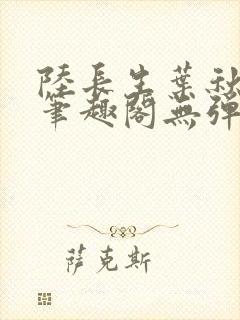 陸長生葉秋
筆趣閣無彈
萨克斯